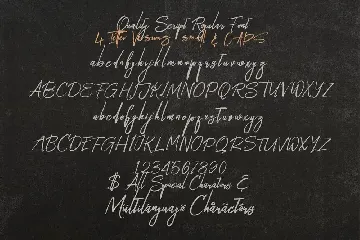 Quality Script Regular Font
4 Type Versions / small & CAPS
abcdefghijklmnopqrstuvwxyz
ABCDEFGHIJKLMNOPQRSTUVWXYZ
abcdefghijklmnopqrstuvwxyz
ABCDEFGHIJKLMNOPQRSTUVWXYZ
1234567890
$ All Special Characters &
Multilanguage Characters